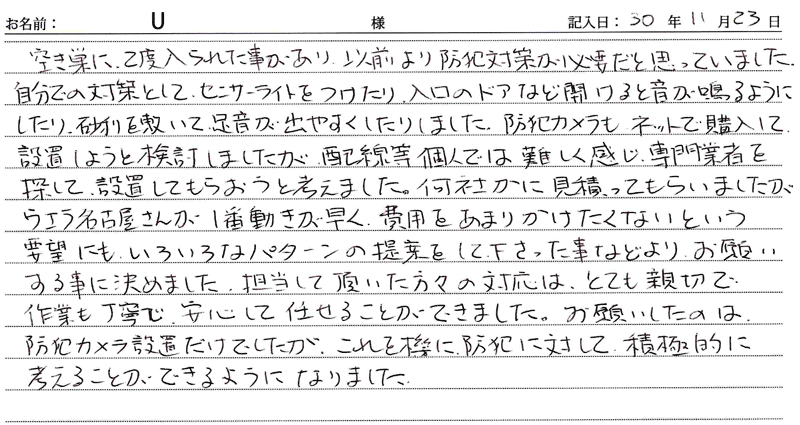 お名前： U 様 記入日：30 年 11 月 23 日
空き巣に、2度入られた事があり、以前より防犯対策が必要だと思っていました。
自分での対策として、センサーライトをつけたり、入口のドアなど開けると音が鳴るように
したり、砂利を敷いて、足音が出やすくしたりしました。防犯カメラも、ネットで購入して、
設置しようと検討しましたが、配線等個人では難しく感じ、専門業者を
探して、設置してもらおうと考えました。何社かに見積ってもらいましたが、
ウエラ名古屋さんが1番動きが早く、費用をあまりかけたくないという
要望にも、いろいろなパターンの提案をして下さった事などより、お願い
する事に決めました。担当して頂いた方々の対応は、とても親切で
作業も丁寧で、安心して任せることができました。お願いしたのは、
防犯カメラ設置だけでしたが、これを機に、防犯に対して、積極的に
考えることができるようになりました。